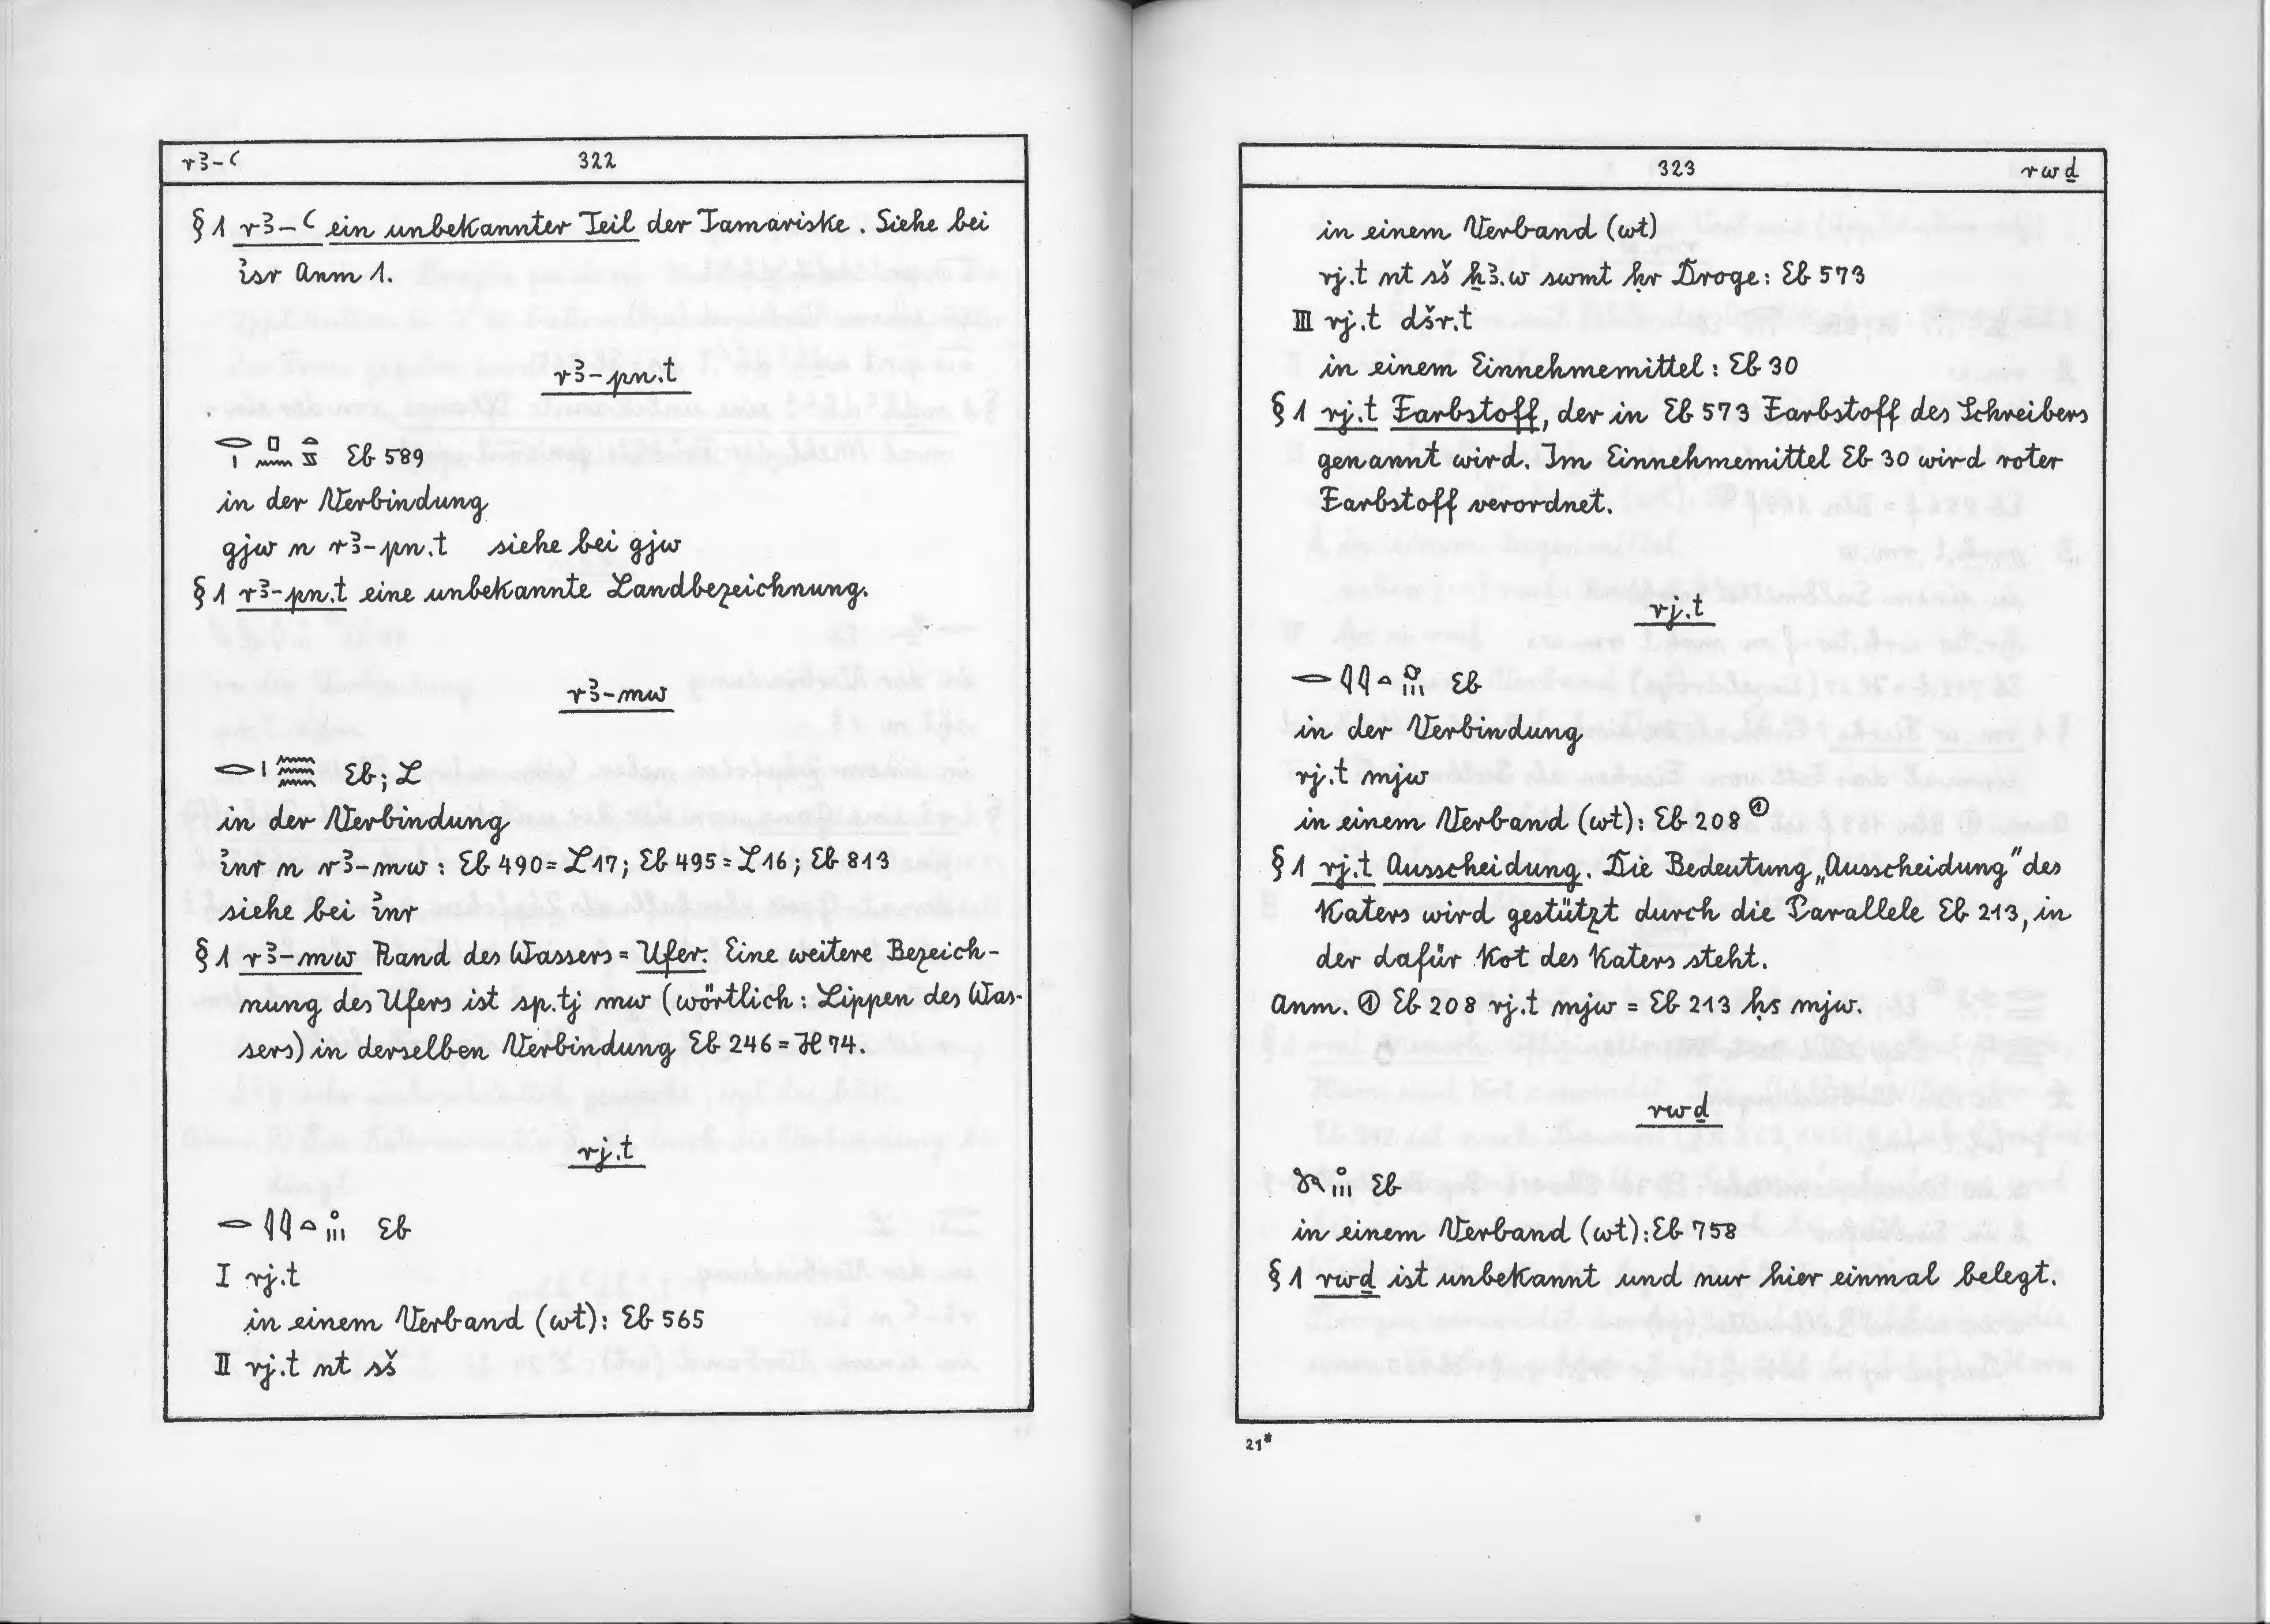 rꜣ-ꜥ 322
§ 1 rꜣ-ꜥ ein unbekannter Teil der Tamariske. Siehe bei
ı͗sr Anm 1.
rꜣ-pn.t
Eb 589
in der Verbindung
gjw n rꜣ-pn.t siehe bei gjw
§ 1 rꜣ-pn.t eine unbekannte Landbezeichnung.
rꜣ-mw
Eb; L
in der Verbindung
ı͗nr n rꜣ-mw : Eb 490 = L 17; Eb 495 = L 16; Eb 813
siehe bei ı͗nr
§ 1 rꜣ-mw Rand des Wassers = Ufer. Eine weitere Bezeich-
nung des Ufers ist sp.tj mw (wörtlich: Lippen des Was-
sers) in derselben Verbindung Eb 246 = H 74.
rj.t
Eb
I rj.t
in einem Verband (wt): Eb 565
II rj.t nt sš
323 rwḏ
in einem Verband (wt)
rj.t nt sš ẖꜣ.w swmt ḥr Droge: Eb 573
III rj.t dšr.t
in einem Einnehmemittel: Eb 30
§ 1 rj.t Farbstoff, der in Eb 573 Farbstoff des Schreibers
genannt wird. Im Einnehmemittel Eb 30 wird roter
Farbstoff verordnet.
rj.t
Eb
in der Verbindung
rj.t mjw
in einem Verband (wt): Eb 208 ①
§ 1 rj.t Ausscheidung. Die Bedeutung „Ausscheidung" des
Katers wird gestützt durch die Parallele Eb 213, in
der dafür Kot des Katers steht.
Anm. ① Eb 208 rj.t mjw = Eb 213 ḥs mjw.
rwḏ
Eb
in einem Verband (wt): Eb 758
§ 1 rwḏ ist unbekannt und nur hier einmal belegt.
21*